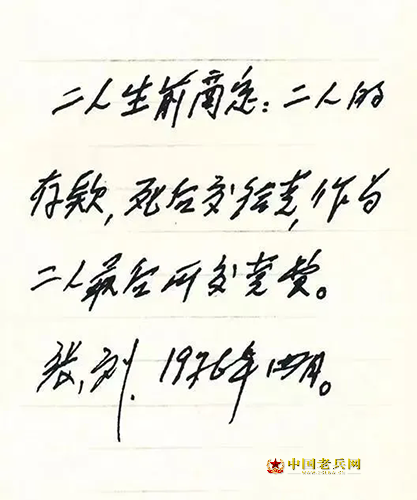 二人生前商定：二人的
存款，死后交给党，作为
二人最后所交党费。
张，刘．1976年四月。
中国老兵网